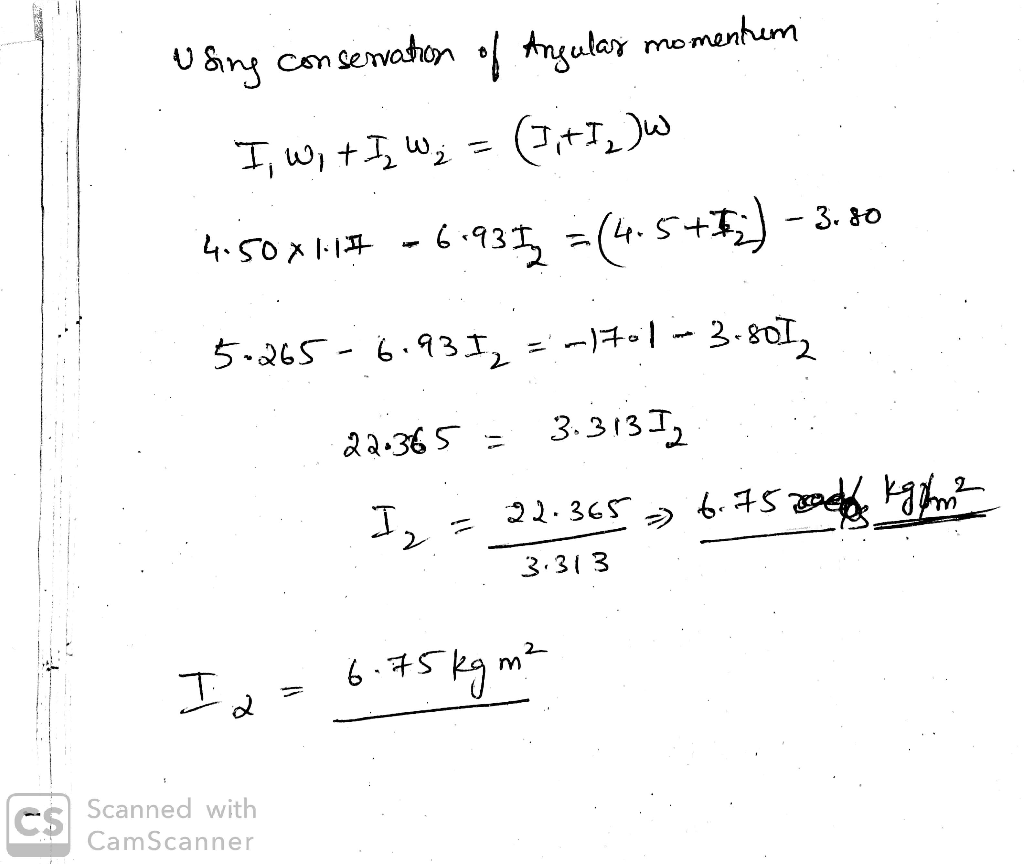 Using conservation of Angular momentum
I₁ w₁ + I₂ w₂ = (I₁+I₂)w
4.50 x 1.17 - 6.93 I₂ = (4.5+I₂) - 3.80
5.265 - 6.93 I₂ = -17.1 - 3.80I₂
22.365 = 3.313 I₂
I₂ = 22.365 / 3.313 ⇒ 6.75 kg m²
I₂ = 6.75 kg m²
CS Scanned with
CamScanner